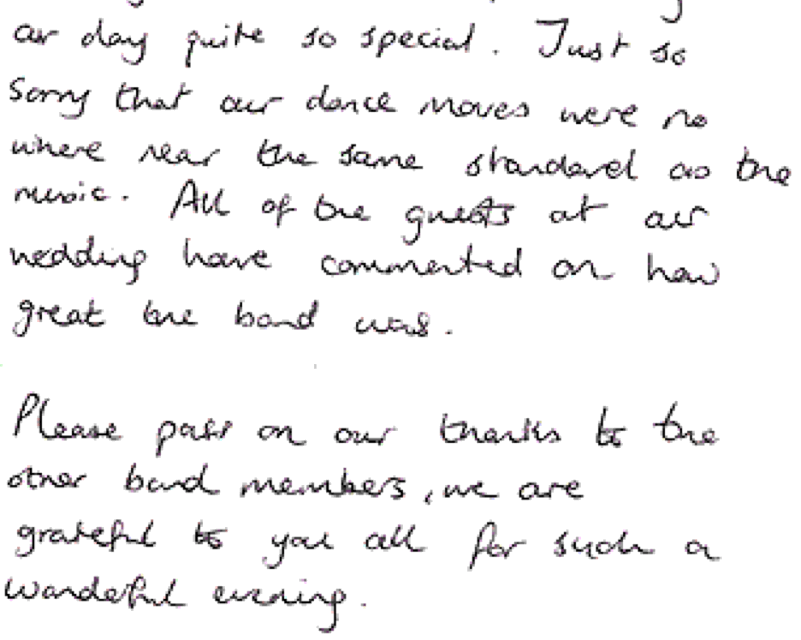 our day quite so special. Just so
sorry that our dance moves were no
where near the same standard as the
music. All of the guests at our
wedding have commented on how
great the band was.
Please pass on our thanks to the
other band members, we are
grateful to you all for such a
wonderful evening.